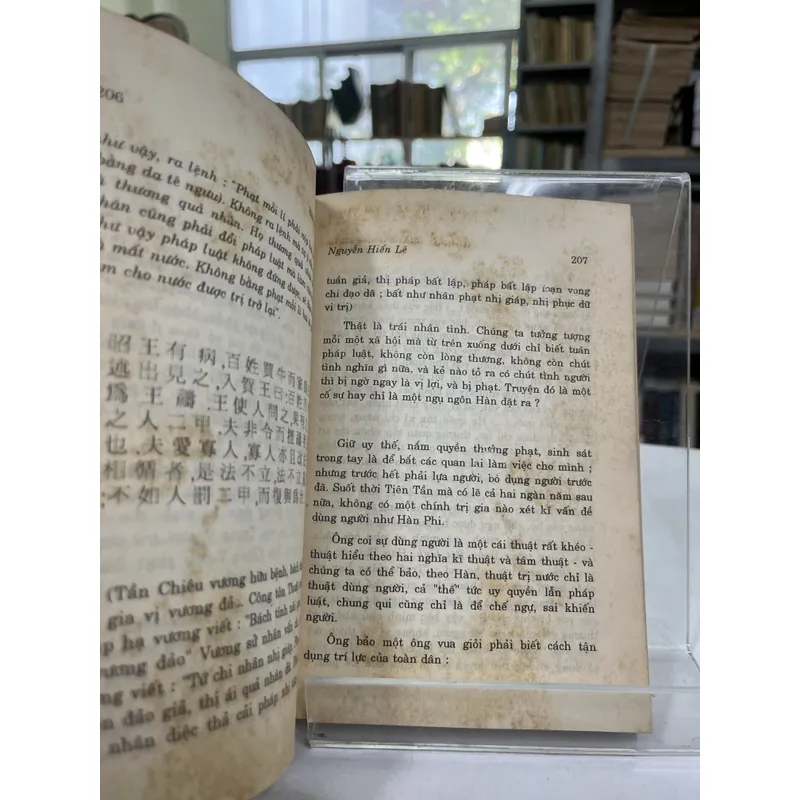 206
hư vậy, ra lệnh : "Phạt mỗi lí phải
bằng da tê ngưu). Không ra lệnh mà
thương quả nhân. Họ thương quả
hân cũng phải đổi pháp luật mà
hư vậy pháp luật không đứng được,
mất nước. Không bằng phạt mỗi lí hai
m cho nước được trị trở lại".
昭王有病,百姓買牛而家
述出見之,入賀王曰:百姓
爲王禱.王使人問之,果有
之人二甲,夫非令而擅禱
也,夫愛寡人,寡人亦且改
相循者,是法不立,法不立
不如人罰二甲,而復與爲
(Tần Chiêu vương hữu bệnh, bách
gia vị vương đả.. Công tôn Thuật
p hạ vương viết : "Bách tính
ương đảo" Vương sử nhân vấn
ng viết : "Tứ chi nhân nhị giáp.
n đảo giả, thị ái quả nhân dã.
nhân diệc thả cải pháp nhi
Nguyễn Hiến Lê 207
tuần giả, thị pháp bất lập, pháp bất lập loạn vong
chi đạo dã ; bất như nhân phạt nhị giáp, nhị phục dữ
vi trị)
Thật là trái nhân tình. Chúng ta tưởng tượng
mỗi một xã hội mà từ trên xuống dưới chỉ biết tuân
pháp luật, không còn lòng thương, không còn chút
tình nghĩa gì nữa, và kẻ nào tỏ ra có chút tình người
thì bị ngờ ngay là vị lợi, và bị phạt. Truyện đó là một
cố sự hay chỉ là một ngụ ngôn Hàn đặt ra ?
Giữ uy thế, nắm quyền thưởng phạt, sinh sát
trong tay là để bắt các quan lai làm việc cho mình ;
nhưng trước hết phải lựa người, bó dụng người trước
đã. Suốt thời Tiên Tần mà có lẽ cả hai ngàn năm sau
nữa, không có một chính trị gia nào xét kĩ vấn đề
dùng người như Hàn Phi.
Ông coi sự dùng người là một cái thuật rất khéo -
thuật hiểu theo hai nghĩa kĩ thuật và tâm thuật - và
chúng ta có thể bảo, theo Hàn, thuật trị nước chỉ là
thuật dùng người, cả "thế" tức uy quyền lẫn pháp
luật, chung qui cũng chỉ là để chế ngự, sai khiến
người.
Ông bảo một ông vua giỏi phải biết cách tận
dụng trí lực của toàn dân :